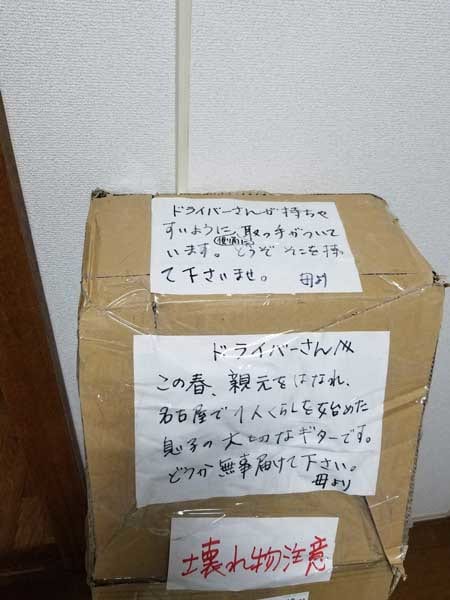 ドライバーさんが持ちや
すいように、取っ手がついて
(側面に)
います。どうぞそこを持っ
て下さいませ。 母より
ドライバーさんへ
この春、親元をはなれ、
名古屋で1人くらしを始めた
息子の大切なギターです。
どうか無事届けて下さい。
母より
壊れ物注意